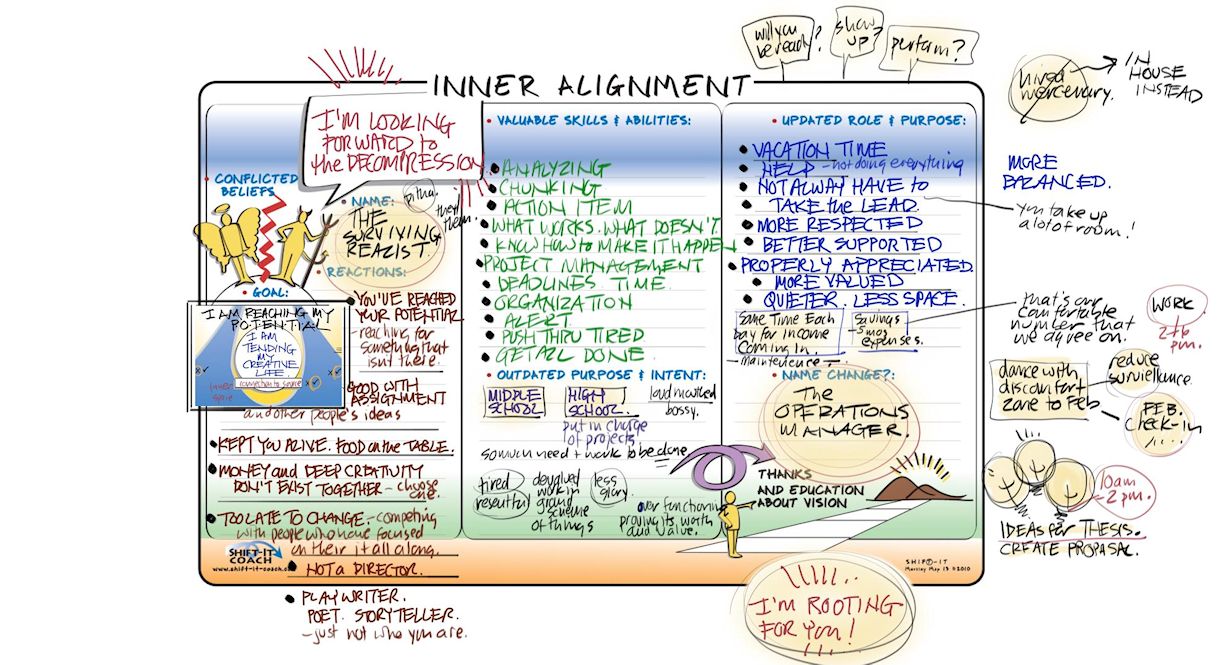 will you
be ready?
show
UP?
perform?
INNER ALIGNMENT
hired
mercenary.
IN
HOUSE
INSTEAD
I'M LOOKING
FORWARD to
the DECOMPRESSION
CONFLICTED
BELIEFS
NAME:
THE
SURVIVING
REAZIST.
they/
them.
REACTIONS:
YOU'VE REACHED
YOUR POTENTIAL
- reaching for
something that
isn't there.
GOAL:
I AM REACHING MY
POTENTIAL
I AM
TENDING
MY
CREATIVE
LIFE.
connection to source
inner
GOOD WITH
ASSIGNMENT
and other people's ideas
KEPT YOU ALIVE. FOOD on the TABLE.
MONEY and DEEP CREATIVITY
DON'T EXIST TOGETHER - choose
one.
TOO LATE TO CHANGE. - competing
with people who have focused
on their it all along.
NOT a DIRECTOR.
PLAYWRITER.
POET. STORYTELLER.
- just not who you are.
SHIFT-IT
COACH
VALUABLE SKILLS & ABILITIES:
ANALYZING
CHUNKING
ACTION ITEM
WHAT WORKS. WHAT DOESN'T.
KNOW HOW to MAKE IT HAPPEN
PROJECT MANAGEMENT
DEADLINES. TIME.
ORGANIZATION
ALERT
PUSH THRU TIRED
GET ALL DONE.
OUTDATED PURPOSE & INTENT:
MIDDLE
SCHOOL
HIGH
SCHOOL.
loud mouthed
bossy.
put in charge
of projects!
so much need + work to be done
tired
resentful
devalued
work in
grand
scheme
of things
less
story.
over functioning
proving its worth
and value.
UPDATED ROLE & PURPOSE:
VACATION TIME
HELP - not doing everything
NOT ALWAY HAVE to
TAKE the LEAD.
MORE RESPECTED
BETTER SUPPORTED
PROPERLY APPRECIATED.
MORE VALUED
QUIETER. LESS SPACE.
Same Time Each
Day for Income
Coming In.
- maintenence -
Savings
- 5 mos
expenses.
NAME CHANGE?:
The
OPERATIONS
MANAGER.
THANKS
AND EDUCATION
ABOUT VISION
SHIFT-IT
I'M ROOTING
FOR YOU!
MORE
BALANCED.
you take up
a lot of room!
that's our
comfortable
number that
we agree on.
WORK
2-6
pm.
dance with
discomfort
zone to Feb
reduce
surveillance.
FEB.
check-in
10am
- 2 pm.
IDEAS for THESIS.
CREATE PROPOSAL.